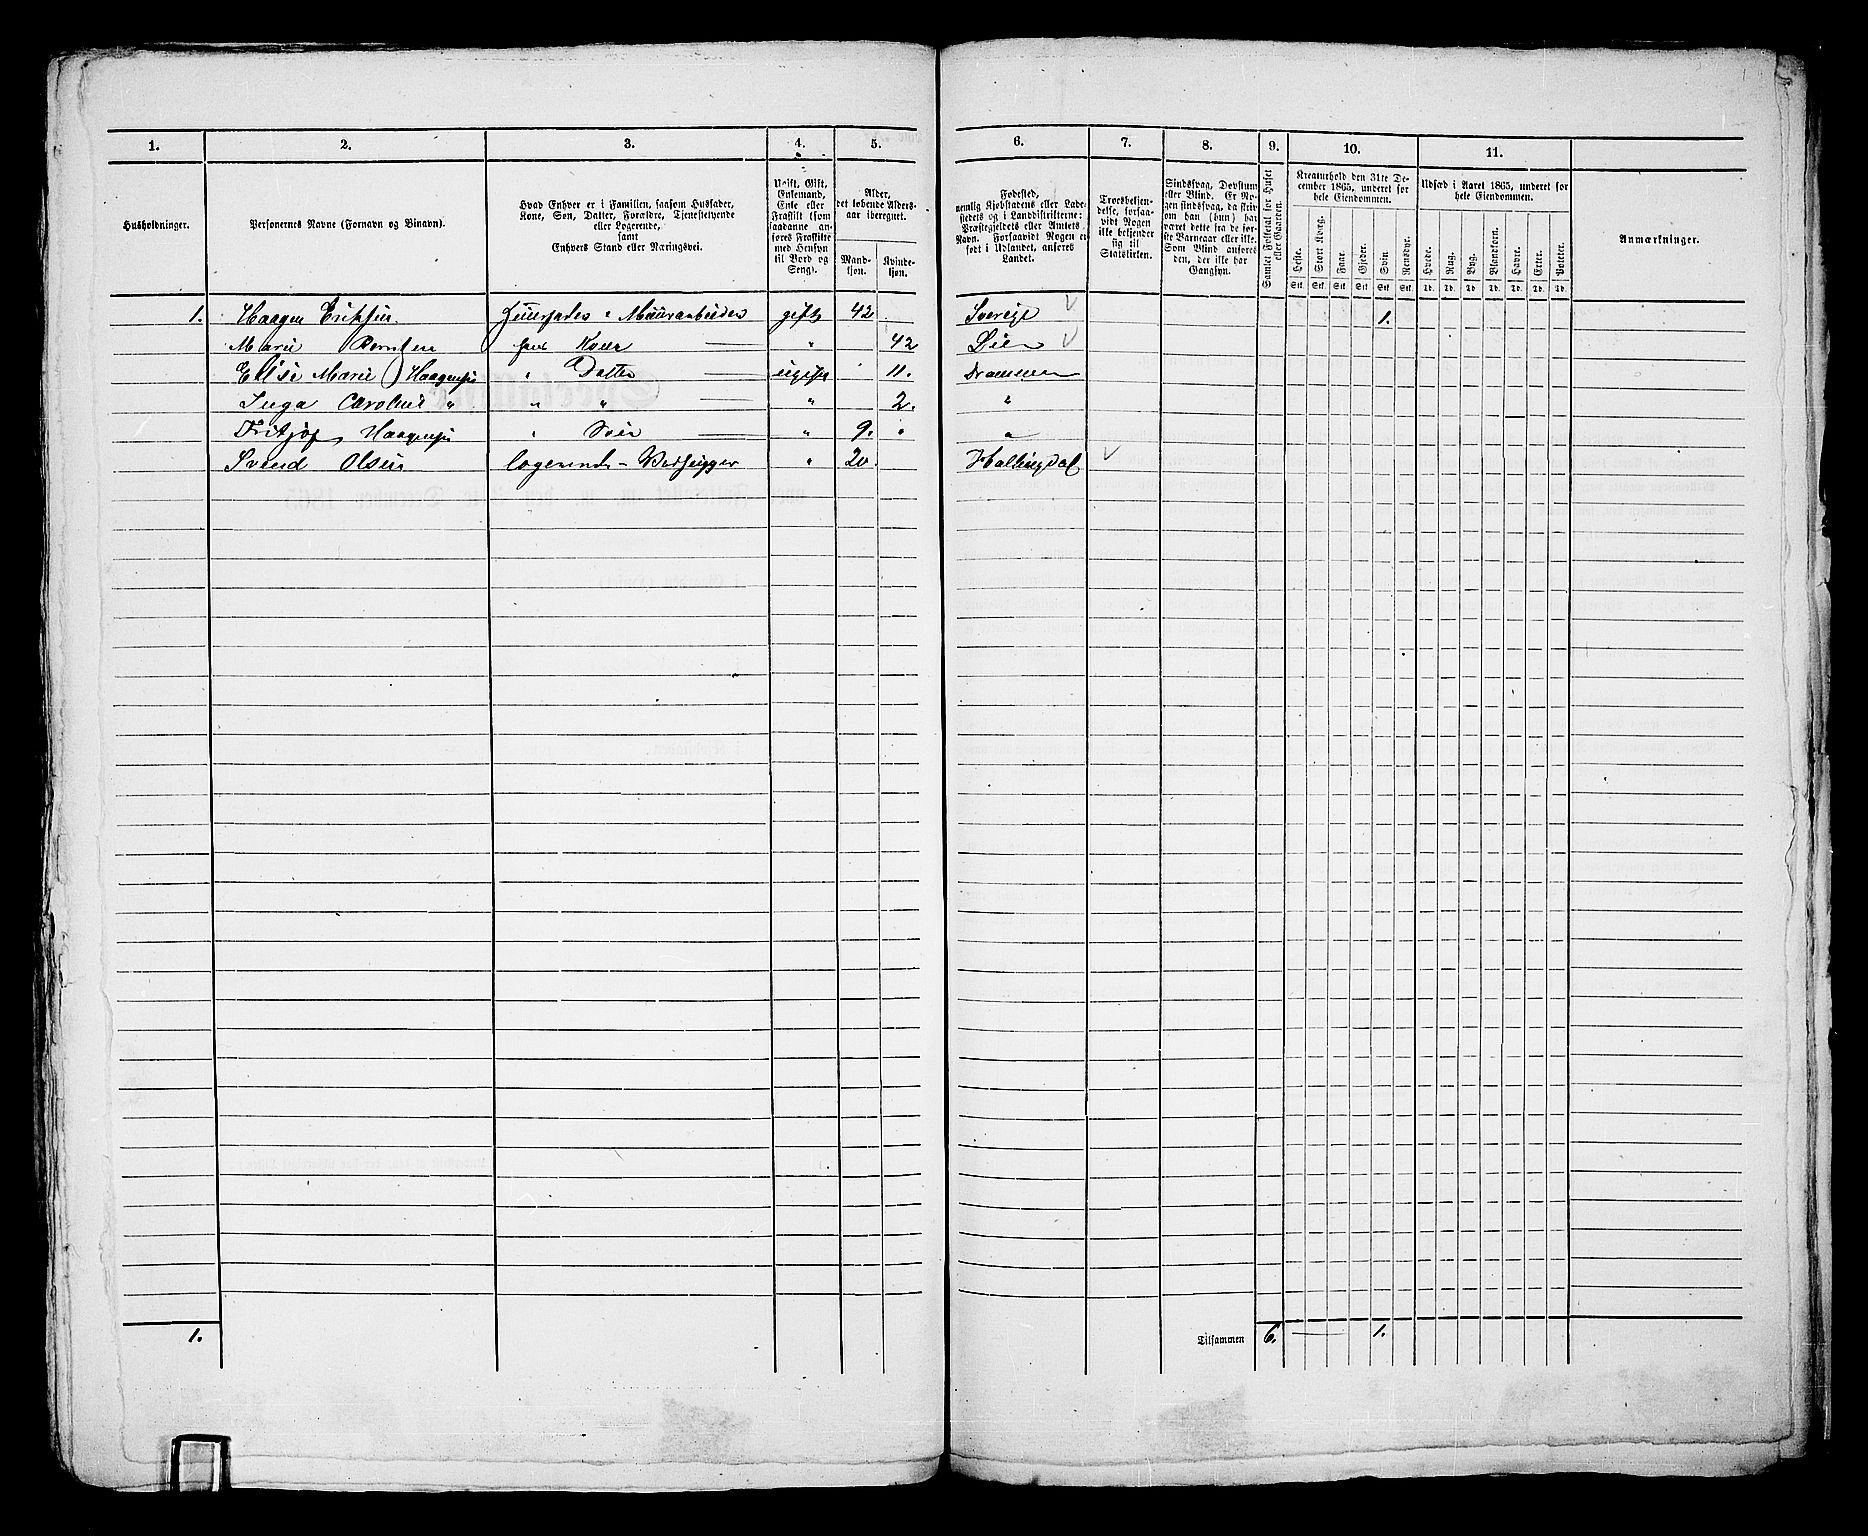 1. 2. 3. 4. 5. 6. 7. 8. 9. 10. 11.
Husholdninger.
Personernes Navne (Fornavn og Binavn).
Hvad Enhver er i Familien, saasom Husfader,
Kone, Søn, Datter, Forældre, Tjenestetyende
eller Logerende,
samt
Enhvers Stand eller Næringsvei.
Ugift, Gift,
Enkemand,
Enke eller
Fraskilt (som
saadanne an-
føres Fraskilte
med Hensyn
til Bord og
Seng).
Alder,
det løbende Alders-
aar iberegnet.
Mand-
kjøn.
Kvinde-
kjøn.
Fødested,
nemlig Kjøbstadens eller Lade-
stedets og i Landdistrikterne:
Præstegjeldets eller Amtets
Navn. Forsaavidt Nogen er
født i Udlandet, anføres
Landet.
Troesbekjen-
delse, forsaa-
vidt Nogen
ikke bekjender
sig til
Statskirken.
Sindssvag, Døvstum
eller Blind. Er No-
gen sindssvag, da skriv
om han (hun) har
været dette fra de før-
ste Barneaar eller ikke.
Som Blind anføres
den, der ikke har
Gangsyn.
Samlet Folketal for Huset
eller Gaarden.
Kreaturhold den 31te De-
cember 1865, underet for
hele Eiendommen.
Heste. Stort Kvæg. Faar. Gjeder. Svin. Rensdyr.
Stk. Stk. Stk. Stk. Stk. Stk.
Udsæd i Aaret 1865, underet for
hele Eiendommen.
Hvede. Rug. Byg. Blandkorn. Havre. Erter. Poteter.
Td. Td. Td. Td. Td. Td. Td.
Anmærkninger.
1. Haagen Eriksen. Huusfader : Muurarbeider gift 42 Sverige 1.
Marie Berntsen Kone " 42 Lier
Elise Marie Haagensen " Datter ugift 11. Drammen
Inga Caroline " " " " 2. "
Fritjof Haagensen " Søn " 9. " "
Svend Olsen logerende - Vedhugger " 20 Hallingdal
1. Tilsammen 6. 1.